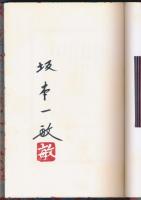 坂本一敏
敏